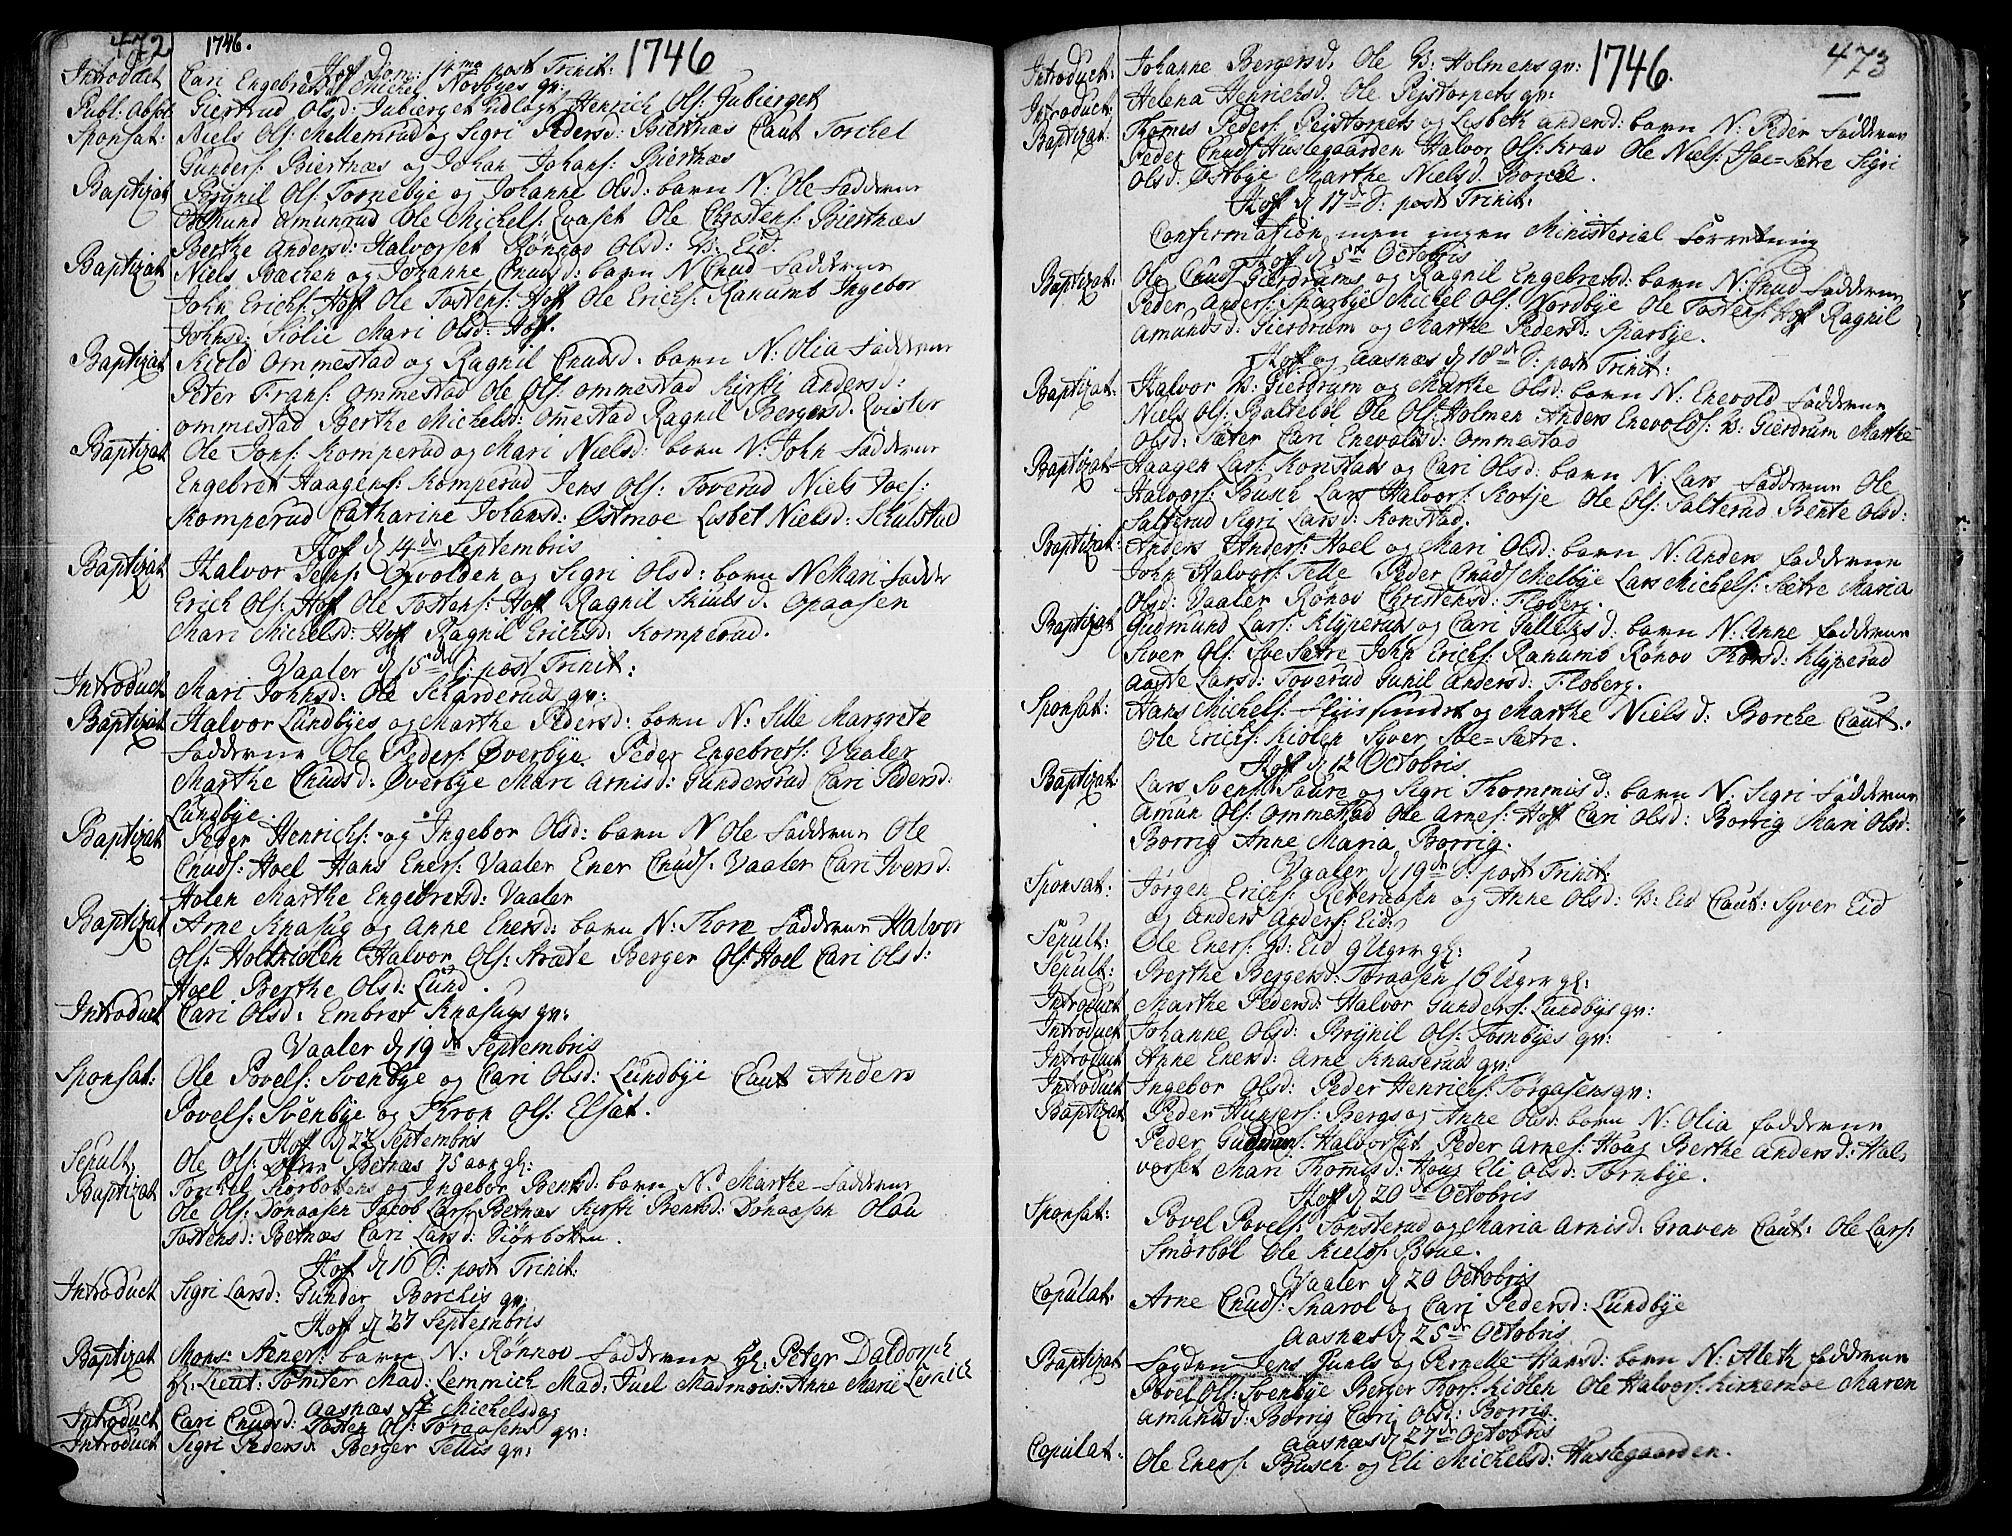 472 1746. 1746
Hoff Dom: 14ma post Trinit:
Introduct Cari Engebretsd: Michel Norbyes qv:
Publ: Absol: Giertrud Olsd: Jubierget Henrich Ols: Jubierget
Sponsat: Niels Ols: Mellemrud og Sigri Pedersd: Biertnæs Caut Torchel
Gunders: Biertnæs og Johan Johans: Biertnæs
Baptizat Brynil Ols: Tornebye og Johanne Olsd: barn N: Ole Fadderne
Amund Amunrud Ole Michels: Evaset Ole Christens: Biertnæs
Berthe Andersd: Halvorset Rønnov Olsd: B: Eid.
Baptizat Niels Bachen og Johanne Cnudsd: barn N Cnud Fadderne
John Erichs: Hoff Ole Tostens: Hoff Ole Erichs: Ranumb Ingebor
Johnsd: Kiølie Mari Olsd: Hoff.
Baptizat Kield Ommestad og Ragnil Cnudsd: barn N: Olia Fadderne
Peter Frans: Ommestad Ole Ols: Ommestad Kirsti Andersd:
Ommestad Berthe Michelsd: Omestad Ragnil Bergersd: Qvister
Baptizat Ole Jons: Komperud og Mari Nielsd: barn N: John Fadderne
Engebret Haagens: Komperud Jens Ols: Toverud Niels Joes:
Komperud Catharine Johansd: Østmoe Lisbet Nielsd: Skulstad
Hoff d 14de Septembris
Baptizat Halvor Jens: Qvolden og Sigri Olsd: barn N Mari Fadder
Erich Ols: Hoff Ole Tostens: Hoff Ragnil Skulsd. Opaasen
Mari Michelsd: Hoff Ragnil Erichsd: Komperud.
Vaaler d 15de S: post Trinit:
Introduct Mari Johnsd: Ole Skarderuds qv:
Baptizat Halvor Lundbyes og Marthe Pedersd: barn N: Sille Margrete
Fadderne Ole Peders: Øverbye Peder Engebrets: Vaaler
Marthe Cnudsd: Øverbye Mari Arnisd: Gundersrud Cari Pedersd:
Lundbye.
Baptizat Peder Henrichs: og Ingebor Olsd: barn N Ole Fadderne Ole
Cnuds: Hoel Hans Eners: Vaaler Ener Cnuds: Vaaler Cari Iversd:
Holen Marthe Engebretsd: Vaaler
Baptizat Arne Knasug og Anne Enersd: barn N: Thore Fadderne Halvor
Ols: Holtkiølen Halvor Ols: Aræte Berger Ols: Hoel Cari Olsd:
Hoel Berthe Olsd: Lund.
Introduct Cari Olsd: Embret Knasugs qv:
Vaaler d 19de Septembris
Sponsat: Ole Povels: Svenbye og Cari Olsd: Lundbye Caut Anders
Povels: Svenbye og Thron Ols: Elsæt.
Hoff d 22 Septembris
Sepult, Ole Ols: Betnæs 75 aar gl:
Baptizat Torchel Kiørbotens og Ingebor Bentsd: barn N: Marthe Fadderne
Ole Ols: Dønaasen Jacob Lars: Betnæs Kirsti Bentsd: Dønaasen Olau
Tostensd: Betnæs Cari Larsd: Kiørbotten.
Hoff d 16 S: post Trinit:
Introduct Sigri Larsd: Gunder Borchis qv:
Hoff d 27 Septembris
Baptizat Mons: Stener: barn N: Rønnov Fadderne hr: Peter Daldorph
hr: Lieut: Tomter Mad: Lemmich Mad: Juel Mamois: Anne Marie Lemich
Aasnæs St Michelsdag
Introduct Cari Cnudsd: Tosten Ols: Toraasens qv:
Introduct Sigri Pedersd: Berger Tellis qv:
1746. 473
Introduct: Johanne Bergersd: Ole B: Holmens qv:
Introduct Helena Henrichsd: Ole Peistorpets qv:
Baptizat: Thomes Peders: Peistorpets og Lisbeth Andersd: barn N: Peder Fadderne
Peder Cnuds Huslegaarden Halvor Ols: Krav Ole Niels: Soe-Sætre Sigri
Olsd: Østbye Marthe Nielsd: Borche.
Hoff d 17de S: post Trinit:
Confirmation men ingen Ministerial Forretning
Hoff d 5te Octobris
Baptizat: Ole Cnuds Gierdrums og Ragnil Engebretsd: barn N: Cnud Fadderne
Peder Anders: Sparbye Michel Ols: Nordbye Ole Tostens: Hoff Ragnil
Amundsd: Gierdrum og Marthe Pedersd: Sparbye.
Hoff og Aasnæs d 18de S: post Trinit:
Baptizat: Halvor B: Gierdrum og Marthe Olsd: barn N: Enevold Fadderne
Niels Ols: Baltebøl Ole Ols: Holmen Anders Enevolds: B: Gierdrum Marthe
Olsd: Sæter Cari Enevoldsd: Ommestad
Baptizat Haagen Lars: Konstads og Cari Olsd: barn N: Lars Fadderne Ole
Halvors: Busch Lars Halvors: Kotje Ole Ols: Salterud Bente Olsd:
Salterud Sigri Larsd: Konstad.
Baptizat: Anders Anders: Hoel og Mari Olsd: barn N: Anders Fadderne
John Halvors: Telle Peder Cnuds Melbye Lars Michels: Sætre Maria
Olsd: Vaaler Rønov Christensd: Floberg.
Baptizat Gudmund Lars: Klyperud og Cari Tallegsd: barn N: Anne Fadderne
Siver Ols: Soe Sætre John Erichs: Ranumb Rønov Thorsd: Klyperud
Aaste Larsd: Toverud Gunil Andersd: Floberg.
Sponsat: Hans Michels: og Marthe Nielsd: Borche Caut:
Ole Erichs: Kiølen Syver Soe-Sætre.
Hoff d 12 Octobris
Baptizat: Lars Svens: Saure og Sigri Thommisd: barn N: Sigri Fadderne
Amun Ols: Ommestad Ole Arnes: Hoff Cari Olsd: Borrig Mari Olsd:
Borrig Anne Maria Borrig.
Vaaler d 19de S: post Trinit:
Sponsat: Jørgen Erichs: Reteraasen og Anne Olsd: B: Eid Caut: Syver Eid
og Anders Anders: Eid:
Sepult: Ole Eners: B: Eid 9 Uger gl:
Sepult: Berthe Bergersd: Toraasen 16 Uger gl:
Introduct Marthe Pedersd: Halvor Gunders: Lundbys qv:
Introduct Johanne Olsd: Brynil Ols: Tornbyes qv:
Introduct Anne Enersd: Arne Knaseruds qv:
Introduct Ingebor Olsd: Peder Henrichs: Torgasens qv:
Baptizat Peder Huners: Bergs og Anne Olsd: barn N: Olia Fadderne
Peder Gudmuns: Halvorset Peder Arnes: Houg Berthe Andersd: Hal-
vorset Mari Thomisd: Houg Eli Olsd: Tornbye.
Hoff d 20de Octobris
Sponsat: Povel Povels: Tonsterud og Maria Arnisd: Graven Caut: Ole Lars:
Smørbøl Ole Kields: Boue.
Vaaler d 20 Octobris
Copulat: Arne Cnuds: Skarol og Cari Pedersd: Lundbye
Aasnæs d 25de Octobris
Baptizat Fogden Jens Juels og Pernelle Hansd: barn N: Aleth Fadderne
Povel Ols: Svenbye Berger Thors: Kiølen Ole Halvors: Kirkemoe Maren
Amundsd: Borrig Cari Olsd: Borrig.
Aasnæs d 27de Octobris
Copulat: Ole Eners: Busch og Eli Michelsd: Huslegaarden.